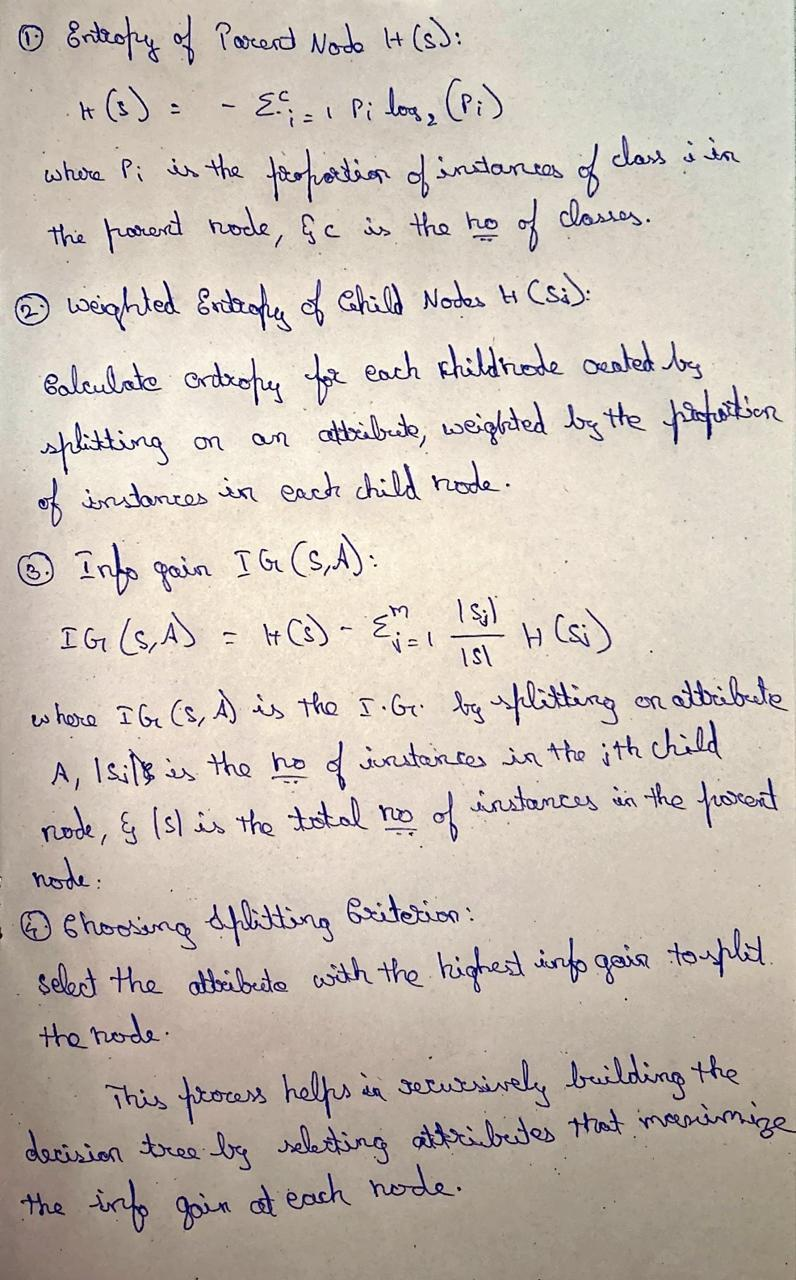 ① Entropy of Parent Node H(S):
H(S) = - Σᶜᵢ₌₁ Pi log₂ (Pi)
where Pi is the proportion of instances of class i in
the parent node, & c is the no of classes.
② Weighted Entropy of Child Nodes H(Si):
Calculate entropy for each childnode created by
splitting on an attribute, weighted by the proportion
of instances in each child node.
③ Info gain IG(S,A):
IG(S,A) = H(S) - Σᵐⱼ₌₁ |Sj|/|S| H(Sj)
where IG(S,A) is the I.G. by splitting on attribute
A, |Sj| is the no of instances in the jth child
node, & |S| is the total no of instances in the parent
node.
④ Choosing Splitting Criterion:
select the attribute with the highest info gain to split
the node.
This process helps in recursively building the
decision tree by selecting attributes that maximize
the info gain at each node.